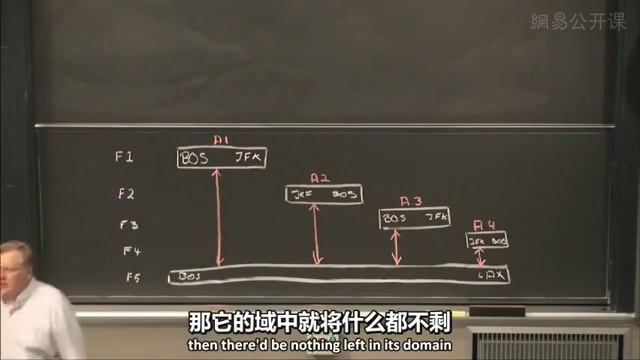 網易公开课
A1
F1 BOS JFK
A2
F2 JKF BOS
A3
F3 BOS JFK
A4
F4 JFK BOS
F5 BOS LAX
那它的域中就将什么都不剩
then there'd be nothing left in its domain